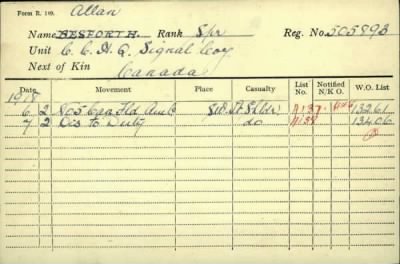 Form R. 149. Allan
Name BESFORTH. Rank Spr Reg. No. 505893
Unit C.C.H.Q. Signal Coy
Next of Kin
Canada
Date Movement Place Casualty List No. Notified N.K.O. W.O. List
1918
6 2 No5 Can Fld Amb SW Lt Shldr A137 13261
7 2 Dis to Duty do A139 13406